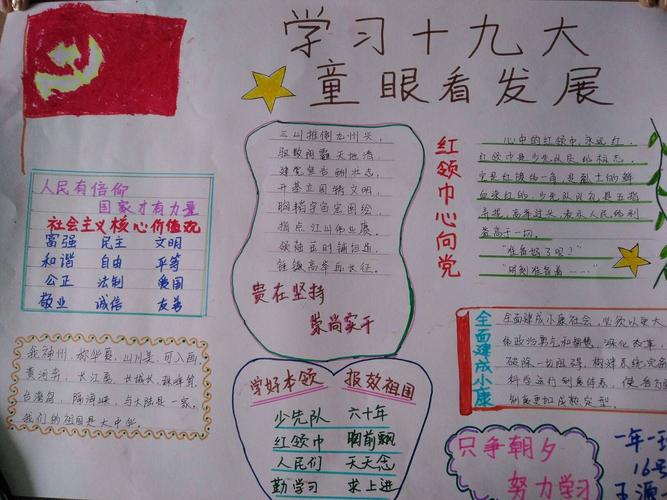 学习十九大
童眼看发展
人民有信仰
国家才有力量
社会主义核心价值观
富强 民主 文明
和谐 自由 平等
公正 法制 爱国
敬业 诚信 友善
我神州，称华夏，山川美，可入画。
黄河奔，长江涌，长城长，珠峰耸。
台湾岛，隔海峡，与大陆是一家。
我们的祖国是大中华。
三山推倒九州欢，
开基立国精文明，
贵在坚持
崇尚实干
学好本领 报效祖国
少先队 六十年
红领巾 胸前飘
人民们 天天念
勤学习 求上进
红领巾心向党
心中的红领巾永远红
红领巾是少先队员的标志，
它是红旗的一角，是烈士的鲜
血染红的。少先队队礼，是五指
并拢，高举过头，表示人民的利
益高于一切。
“准备好了吗？”
“时刻准备着……”
全面建成小康
全面建成小康社会，必须以更大
政治勇气和智慧，深化改革，
破除一切阻碍，构建系统完备
科学运行制度体系，使各方面
制度更加成熟定型。
只争朝夕
努力学习
一年一班
16号